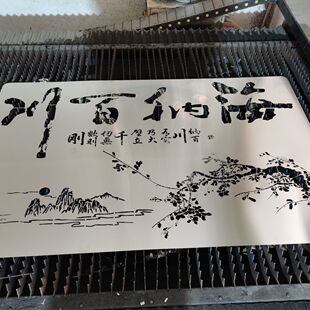 海纳百川
纳百川有容乃大壁立千仞无欲则刚